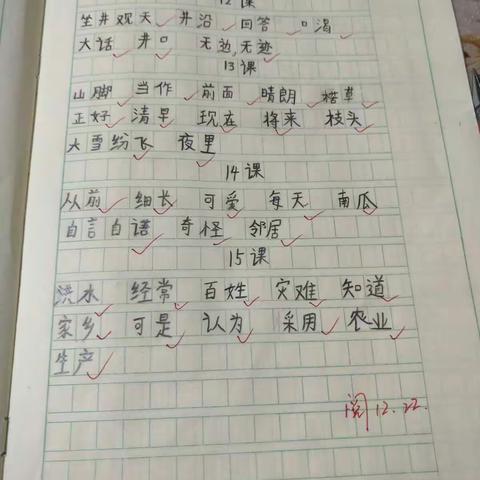 12课
坐井观天 井沿 回答 口渴
大话 井口 无边无迹
13课
山脚 当作 前面 晴朗 枯草
正好 清早 现在 将来 枝头
大雪纷飞 夜里
14课
从前 细长 可爱 每天 南瓜
自言自语 奇怪 邻居
15课
洪水 经常 百姓 灾难 知道
家乡 可是 认为 采用 农业
生产
阅 12.22.